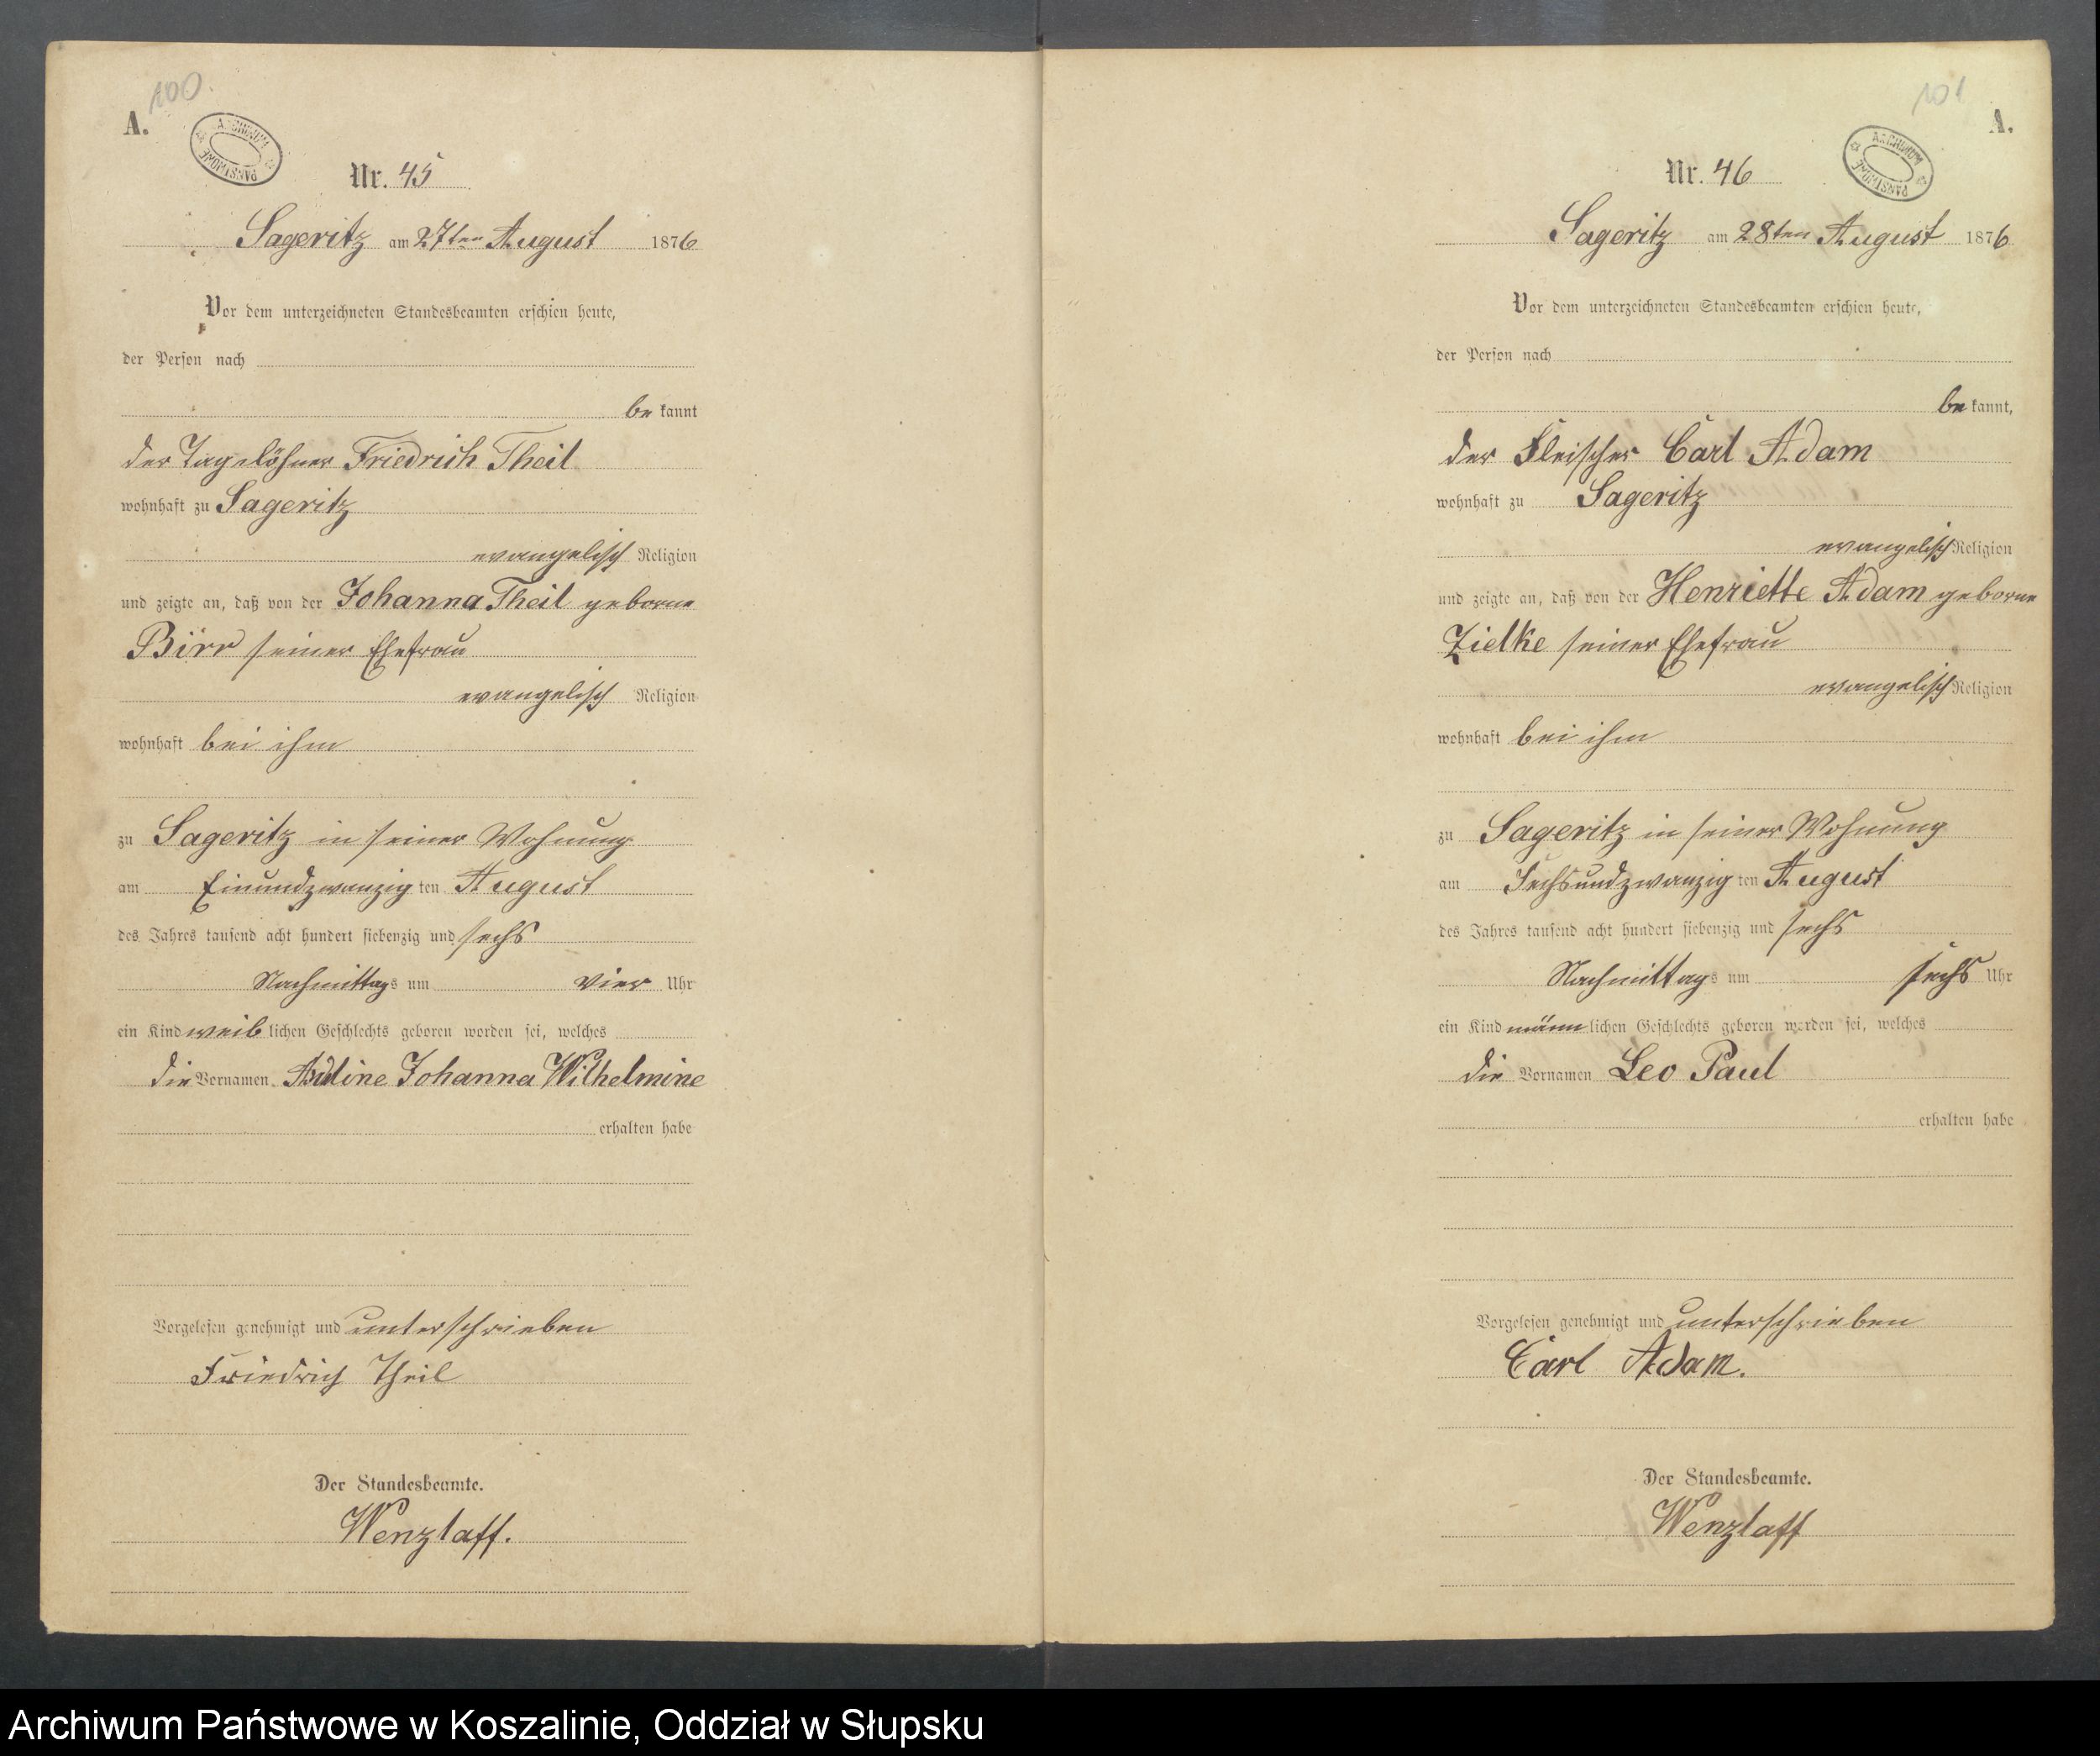 100.
A.
ARCHIWUM PAŃSTWOWE
Nr. 45
Sageritz am 27ten August 1876
Vor dem unterzeichneten Standesbeamten erschien heute,
der Person nach
be kannt
der Tagelöhner Friedrich Theil
wohnhaft zu Sageritz
evangelisch Religion
und zeigte an, daß von der Johanna Theil geborne
Birr seiner Ehefrau
evangelisch Religion
wohnhaft bei ihm
zu Sageritz in seiner Wohnung
am Einundzwanzig ten August
des Jahres tausend acht hundert siebenzig und sechs
Nachmittags um vier Uhr
ein Kind weib lichen Geschlechts geboren worden sei, welches
die Vornamen Johanna Wilhelmine
erhalten habe
Vorgelesen genehmigt und unterschrieben
Friedrich Theil
Der Standesbeamte.
Wenzlaff.
101
A.
ARCHIWUM PAŃSTWOWE
Nr. 46
Sageritz am 28ten August 1876
Vor dem unterzeichneten Standesbeamten erschien heute,
der Person nach
be kannt,
der Fleischer Carl Adam
wohnhaft zu Sageritz
evangelisch Religion
und zeigte an, daß von der Henriette Adam geborne
Zielke seiner Ehefrau
evangelisch Religion
wohnhaft bei ihm
zu Sageritz in seiner Wohnung
am Sechsundzwanzig ten August
des Jahres tausend acht hundert siebenzig und sechs
Nachmittags um sechs Uhr
ein Kind männ lichen Geschlechts geboren worden sei, welches
die Vornamen Leo Paul
erhalten habe
Vorgelesen genehmigt und unterschrieben
Carl Adam.
Der Standesbeamte.
Wenzlaff
Archiwum Państwowe w Koszalinie, Oddział w Słupsku